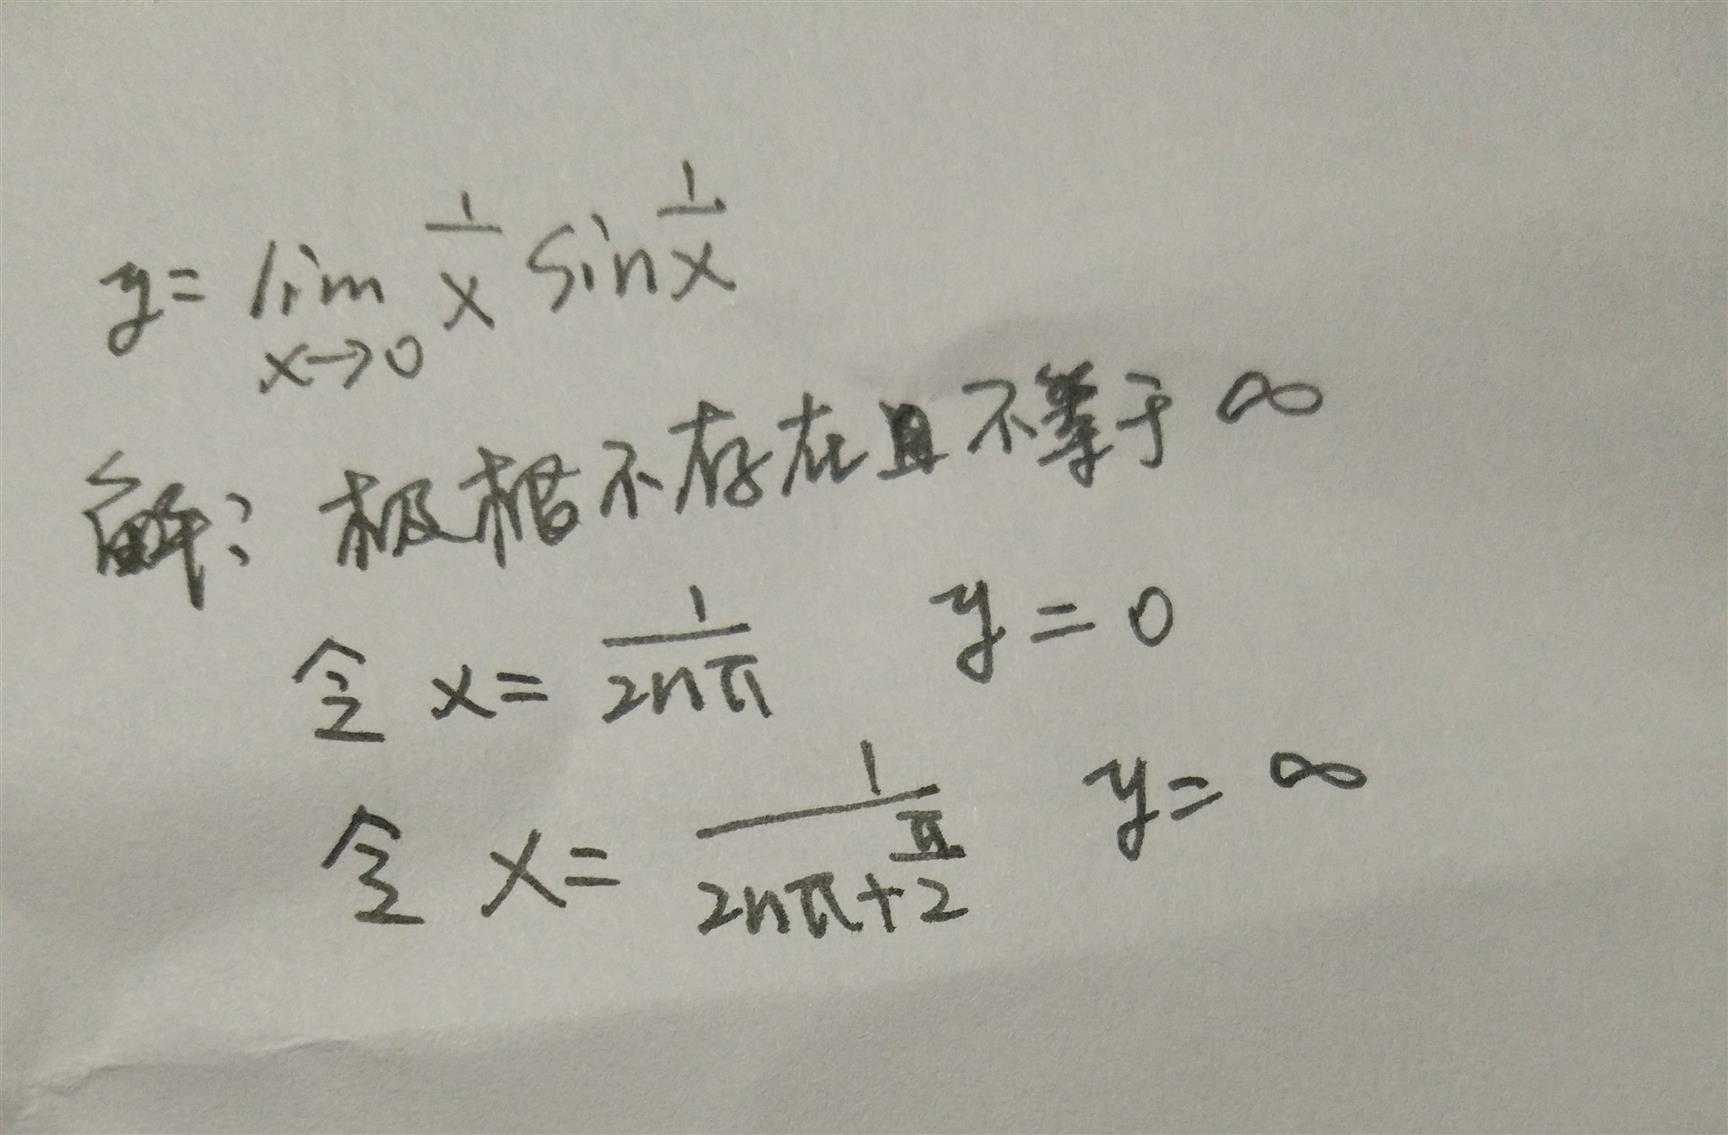 y = lim x→0 1/x sin 1/x
解: 极楷不存在且不等于 ∞
令 x = 1/2nπ y = 0
令 x = 1/(2nπ+π/2) y = ∞